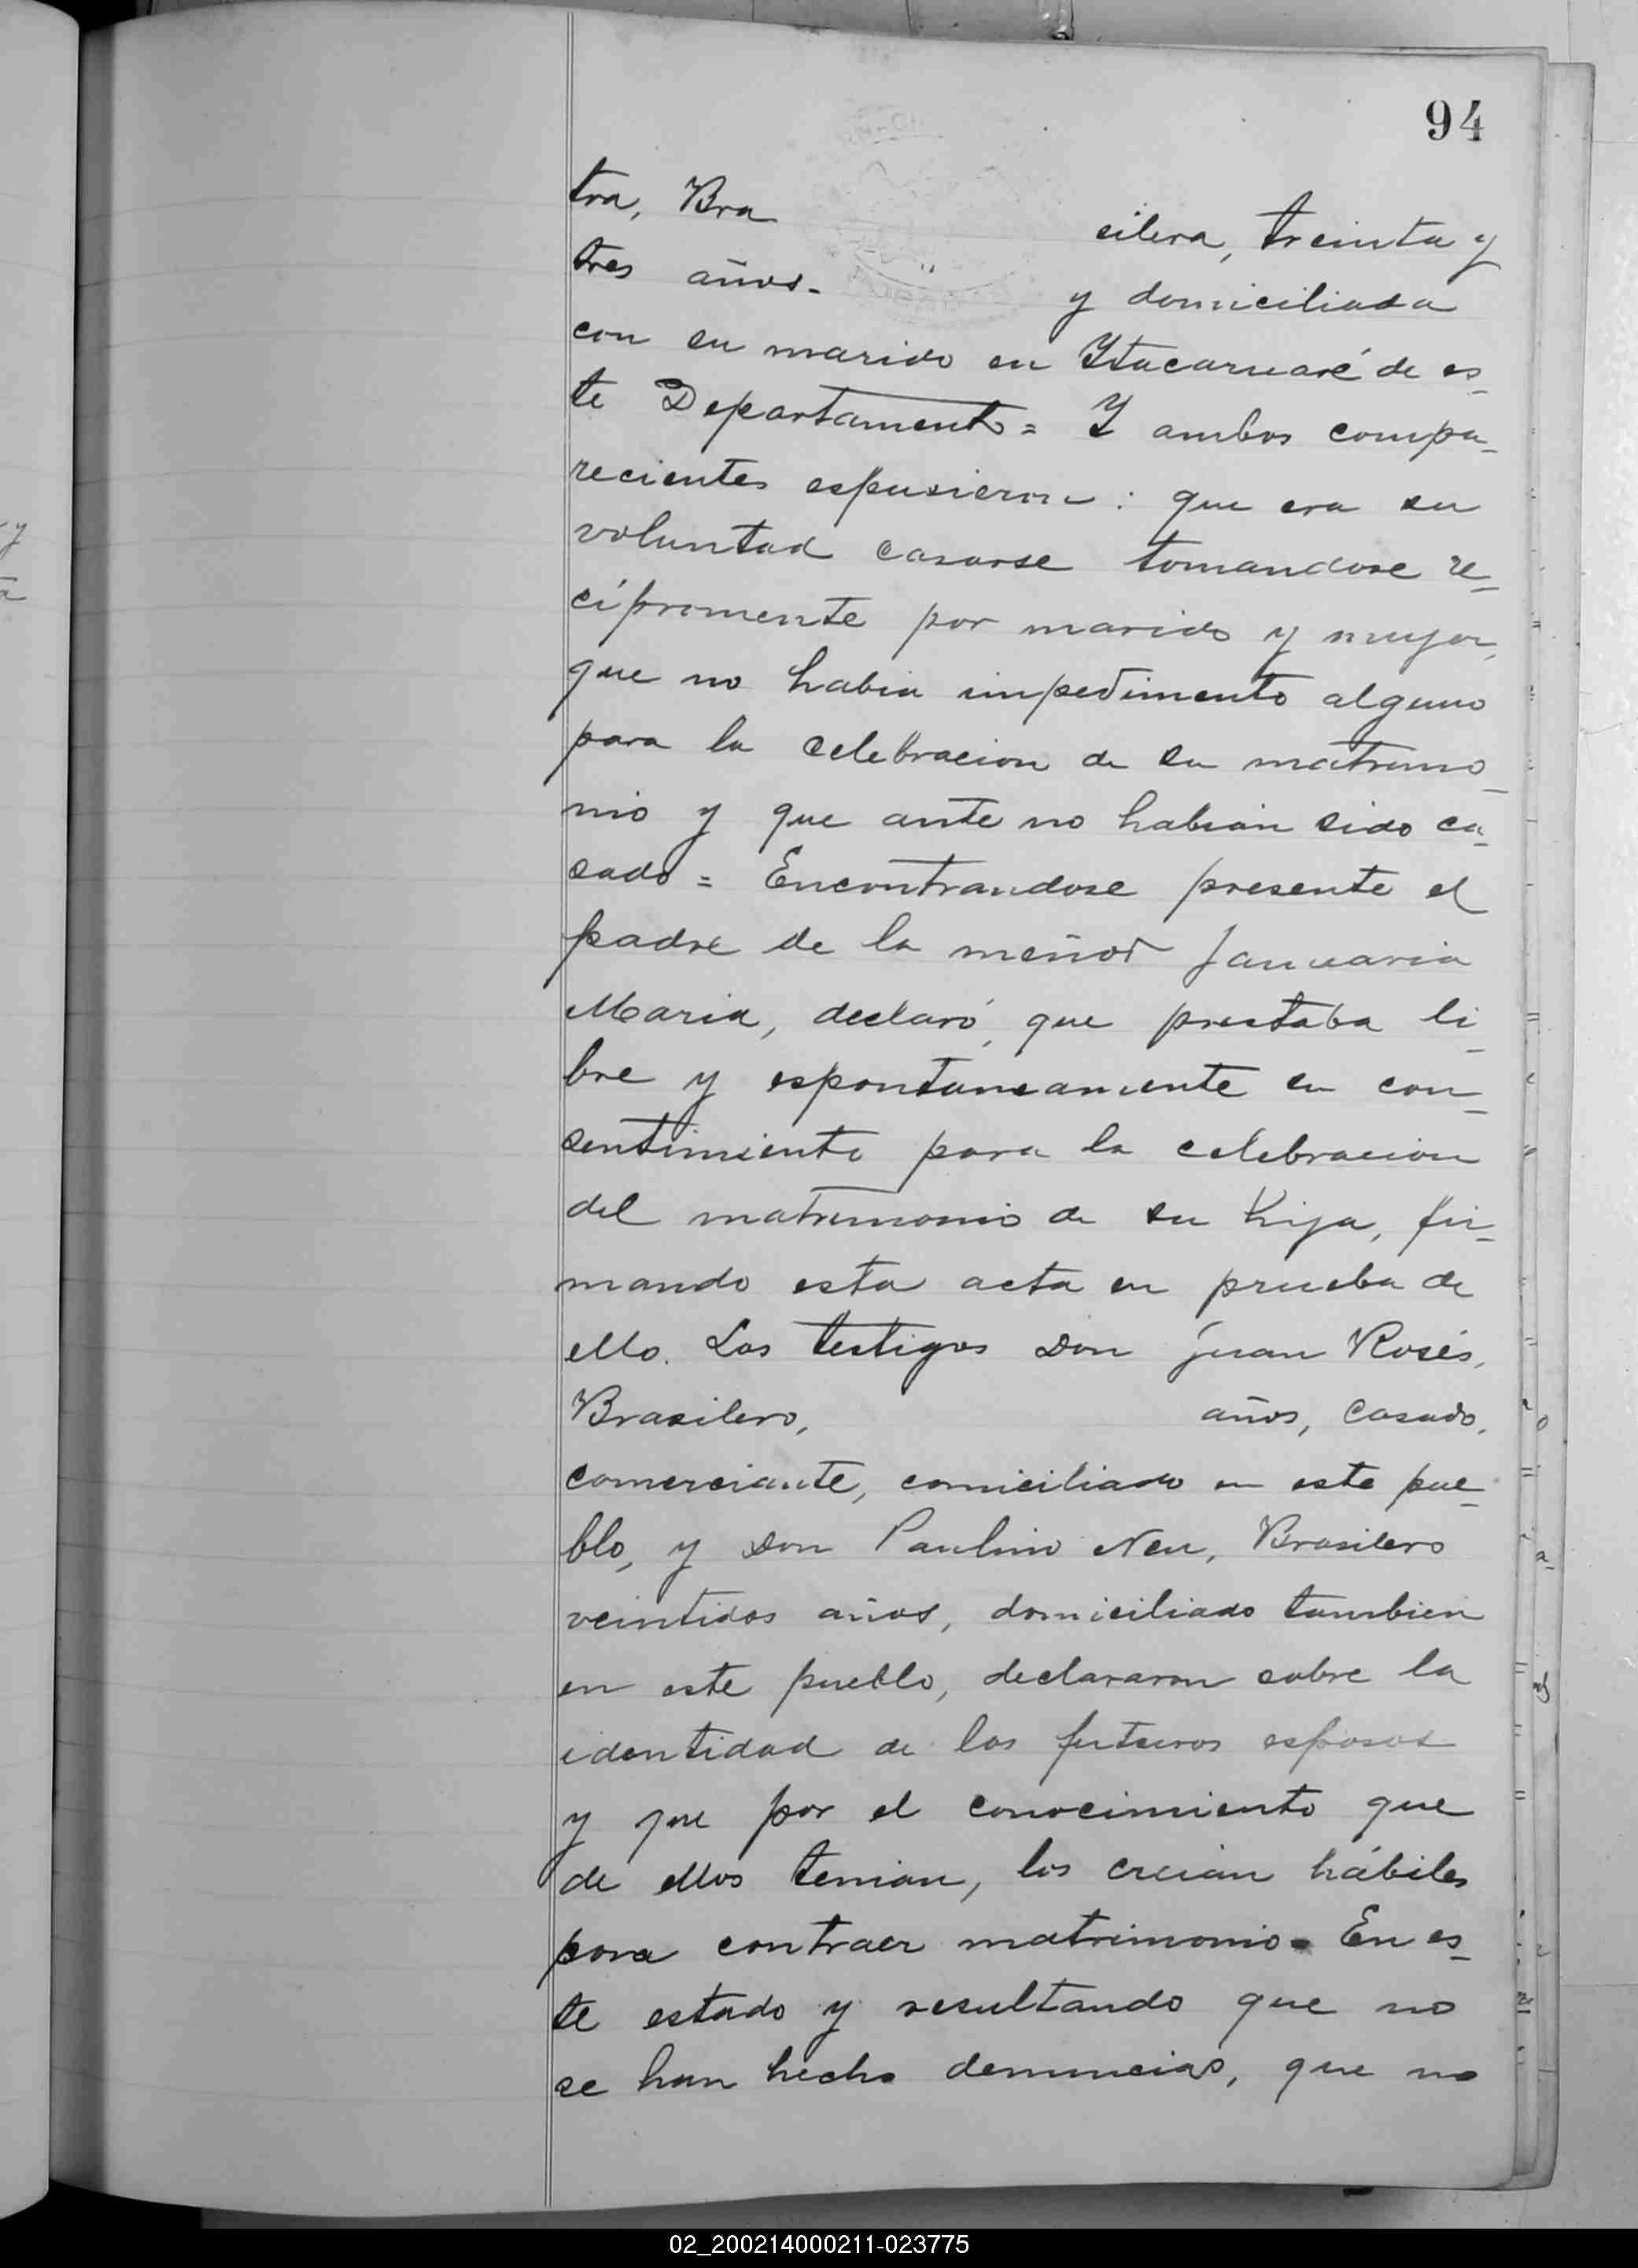 94
tra, Bra cilera, treinta y
tres años. y domiciliada
con su marido en Ytacaruaré de es-
te Departamento = Y ambos compa-
recientes espusieron: que era su
voluntad casarse tomandose re-
cípromente por marido y mujer,
que no habia impedimento alguno
para la celebracion de su matrimo-
nio y que ante no habian sido ca-
sado = Encontrandose presente el
padre de la menor Januaria
Maria, declaró, que prestaba li-
bre y espontaneamente su con-
sentimiento para la celebracion
del matrimonio de su hija, fir-
mando esta acta en prueba de
ello. Los testigos Don Juan Rosés,
Brasilero, años, casado,
comerciante, domiciliado en este pue-
blo, y Don Paulino Neu, Brasilero
veintidos años, domiciliado tambien
en este pueblo, declararon sobre la
identidad de los futuros esposos
y que por el conocimiento que
de ellos tenian, los creian hábiles
para contraer matrimonio. En es-
te estado y resultando que no
se han hecho denuncias, que no
02_200214000211-023775